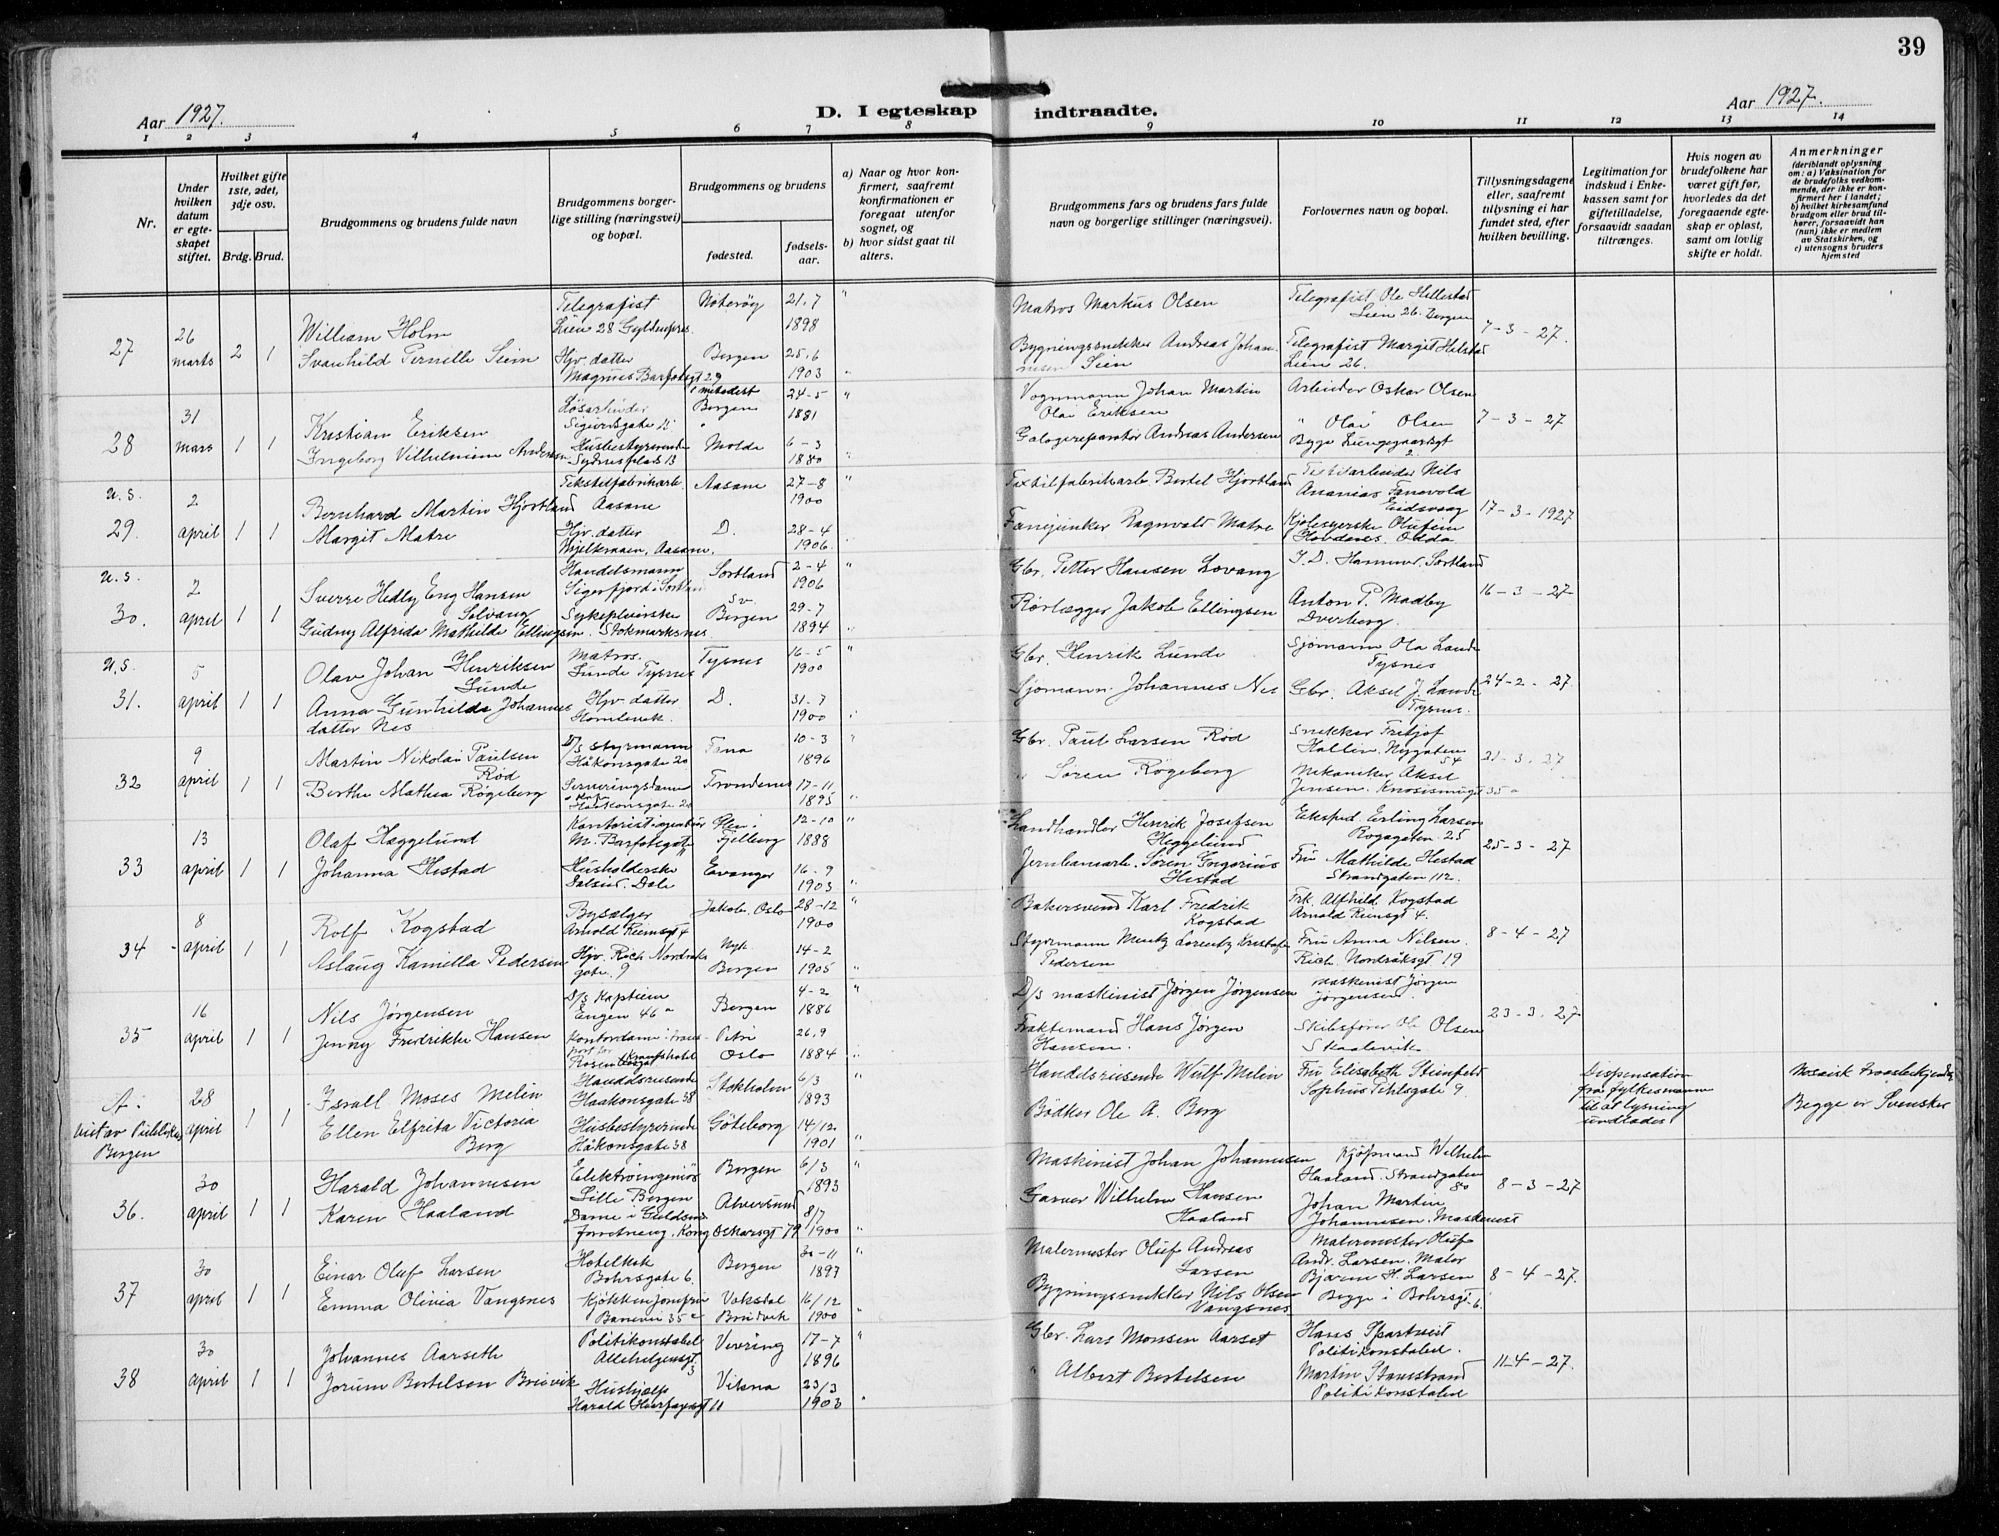 39
Aar 1927.
D. I egteskap indtraadte.
Aar 1927.
1 2 3 4 5 6 7 8 9 10 11 12 13 14
Nr.
Under hvilken datum er egteskapet stiftet.
Hvilket gifte 1ste, 2det, 3dje osv.
Brdg. Brud.
Brudgommens og brudens fulde navn
Brudgommens borgerlige stilling (næringsvei) og bopæl.
Brudgommens og brudens
fødested.
fødselsaar.
a) Naar og hvor konfirmert, saafremt konfirmationen er foregaat utenfor sognet, og
b) hvor sidst gaat til alters.
Brudgommens fars og brudens fars fulde navn og borgerlige stillinger (næringsvei).
Forlovernes navn og bopæl.
Tillysningsdagene eller, saafremt tillysning ei har fundet sted, efter hvilken bevilling.
Legitimation for indskud i Enkekassen samt for giftetilladelse, forsaavidt saadan tiltrænges.
Hvis nogen av brudefolkene har været gift før, hvorledes da det foregaaende egteskap er opløst, samt om lovlig skifte er holdt.
Anmerkninger
(deriblandt oplysning om: a) Vaksination for de brudefolks vedkommende, der ikke er konfirmert her i landet; b) hvilket kirkesamfund brudgom eller brud tilhører, forsaavidt han (hun) ikke er medlem av Statskirken, og c) utensogns bruders hjemsted
27 26 marts 2 1
William Holm
Telegrafist Lien 28 Gyldenpris
Nøterøy 21.7 1898 "
Matros Markus Olsen
Telegrafist Ole Hellestad Lien 26 Bergen
7-3-27.
Svanhild Pernille Seim
Hjv. datter Magnus Barfotsgt 29
Bergen 25.6 1903 "
Bygningssnekker Andreas Johannesen Seim
Telegrafist Margit Helstad Lien 26.
28 31 mars 1 1
Kristian Eriksen
Løsarbeider Sigurdsgate
metodist Bergen 24-5 1881 "
Vognmann Johan Martin Olai Eriksen
Arbeider Oskar Olsen
7-3-27
Ingeborg Vilhelmine Andersen
Husbestyrerinde Sydnesplads 13
Molde 6-3 1880 "
Galogereparatør Andreas Andersen
" Olai Olsen Begge Lungegaardsgt 2.
u.s. 29. 2 april 1 1
Bernhard Martin Hjortland
Tekstilfabrikarb. Aasane
Aasane 27-8 1900 "
Textilfabrikarb. Bertel Hjortland
Textilarbeider Nils Ananias Tanevold Eidsvaag
17-3-1927
Margit Matre
Hjv. datter Mjelkeraaen, Aasane.
D. 28-4 1906.
Fanejunker Ragnvald Matre
Kjolesyerske Olufine Hovdenes. Odda
u.s. 30. 2 april 1 1
Sverre Hedly Eng Hansen Solvang
Handelsmann Sigerfjord i Sortland
Sortland 2-4 1906 "
Gbr. Petter Hansen Lovang
J. D. Hammer, Sortland
16-3-27
Gudny Alfrida Mathilde Ellingsen.
Sykepleierske Stokmarksnes.
Bergen 29-7 1894
Rørlægger Jakob Ellingsen
Anton P. Madby Dverberg.
u.s. 31. 5 april 1 1
Olav Johan Henriksen Lunde
Matros. Lunde Tysnes
Tysnes 16-5 1900 "
Gbr. Henrik Lunde
Sjømann Ola Lande Tysnes
24-2-27.
Anna Gunhilda Johannesdatter Nes
Hjv datter
D. 31.7 1900
Sjømann. Johannes Nes
Gbr. Aksel J. Lande Tysnes.
32 9 april 1 1
Martin Nikolai Paulsen Rød
D/s styrmann Håkonsgate 20
Fana 10-3 1896 "
Gbr. Paul Larsen Rød
Snekker Fritjof Hallin. Nygaten 54
21-3-27
Berthe Mathea Røgeberg
Serveringsdame Haakonsgate 20
Trondenes 17-11 1895 "
" Søren Røgeberg
Mekaniker Aksel Jensen. Knøsismuget 35a
33 13 april 1 1
Olaf Hæggelund
Kontorist M. Barfotsgate
Ølen i Fjelberg 12-10 1888 "
Landhandler Henrik Josefsen Heggelund
Eksped Erling Larsen 25
25-3-27
Johanna Hestad
Husholderske Dalseid. Dale
Evanger 16-9 1903 "
Jernbanearb. Søren Gregorius Hestad
Fru Mathilde Hestad Strandgaten 112.
34 8 april 1 1
Rolf Kogstad
Bysælger Arnold Reimsgt 4
Jakob. Oslo 28-12 1900 "
Bakersvend Karl Fredrik Kogstad
Frk. Alfhild Kogstad Arnold Reimsgt 4.
8-4-27
Aslaug Kamilla Pedersen
Hjv. Rich Nordraks gate. 9
Nyk. Bergen 14-2 1905 "
Styrmann Mentz Lorentz Kristofer Pedersen
Fru Anna Nilsen. Rich. Nordråksgt 19
35 16 april 1 1
Nils Jørgensen
D/s Kaptein Engen 46a
Bergen 4-2 1886 "
D/s maskinist Jørgen Jørgensen
Maskinist Jørgen Jørgensen.
23-3.27
Jenny Fredrikke Hansen
Kontordame i
Petri Oslo 26.9 1884 "
Fraktemand Hans Jørgen Hansen.
Skibsfører Ole Olsen Skaalevik
A. Bergen 28 april 1 1
Israll Moses Melin
Handelsreisende Haakonsgate 38
Stokholm 6/3 1893 "
Handelsreisende Wulf Melin
Fru Elisabeth Steinfeldt Sophus 9.
Dispensation fra fylkesmann til at lysning undlades
Mosaisk troesbekjendelse Begge er Svensker
Ellen Elfrida Victoria Berg
Husbestyrerinde Håkonsgate 38
Göteborg 14/12. 1901 "
Bödker Ole A. Berg
36. 30 april 1 1
Harald Johannesen
Elektroingeniør Lille Bergen
Bergen 6/3 1893 "
Maskinist Johan Johannesen
Kjøpmand Wilhelm Haaland. Strandgaten 80
8-3-27
Karen Haaland
Dame i Guldsmed forretning. Kong Oskarsgt 79
Alversund 8/7 1900 "
Garver Wilhelm Hansen Haaland
Johan Martin Johannesen. Maskinist
37 30 april 1 1
Einar Oluf Larsen
Hotelkok Bøhrsgate 6.
Bergen 30-11 1897 "
Malermester Oluf Andreas Larsen
Malermester Oluf Andr. Larsen. Maler Bjarne H. Larsen Begge i Bøhrsgt. 6.
8-4-27.
Emma Olivia Vangsnes
Kjøkkenjomfru 35a
Vaksdal Bruvik 16/12 1900 "
Bygningssnekker Nils Olsen Vangsnes
38 30 april 1 1
Johannes Aarseth
Politikonstabel Allehelgensgt. 3
Vevring 17-7 1896 "
Gbr. Lars Monsen Aarset
Hans Politikonstabel.
11-4-27.
Jorum Bertelsen Brusvik
Hushjælp Harald Haarfagesgt 11
Vikna 23/3 1903 "
" Albert Bertelsen
Martin Stamstrand Politikonstabel